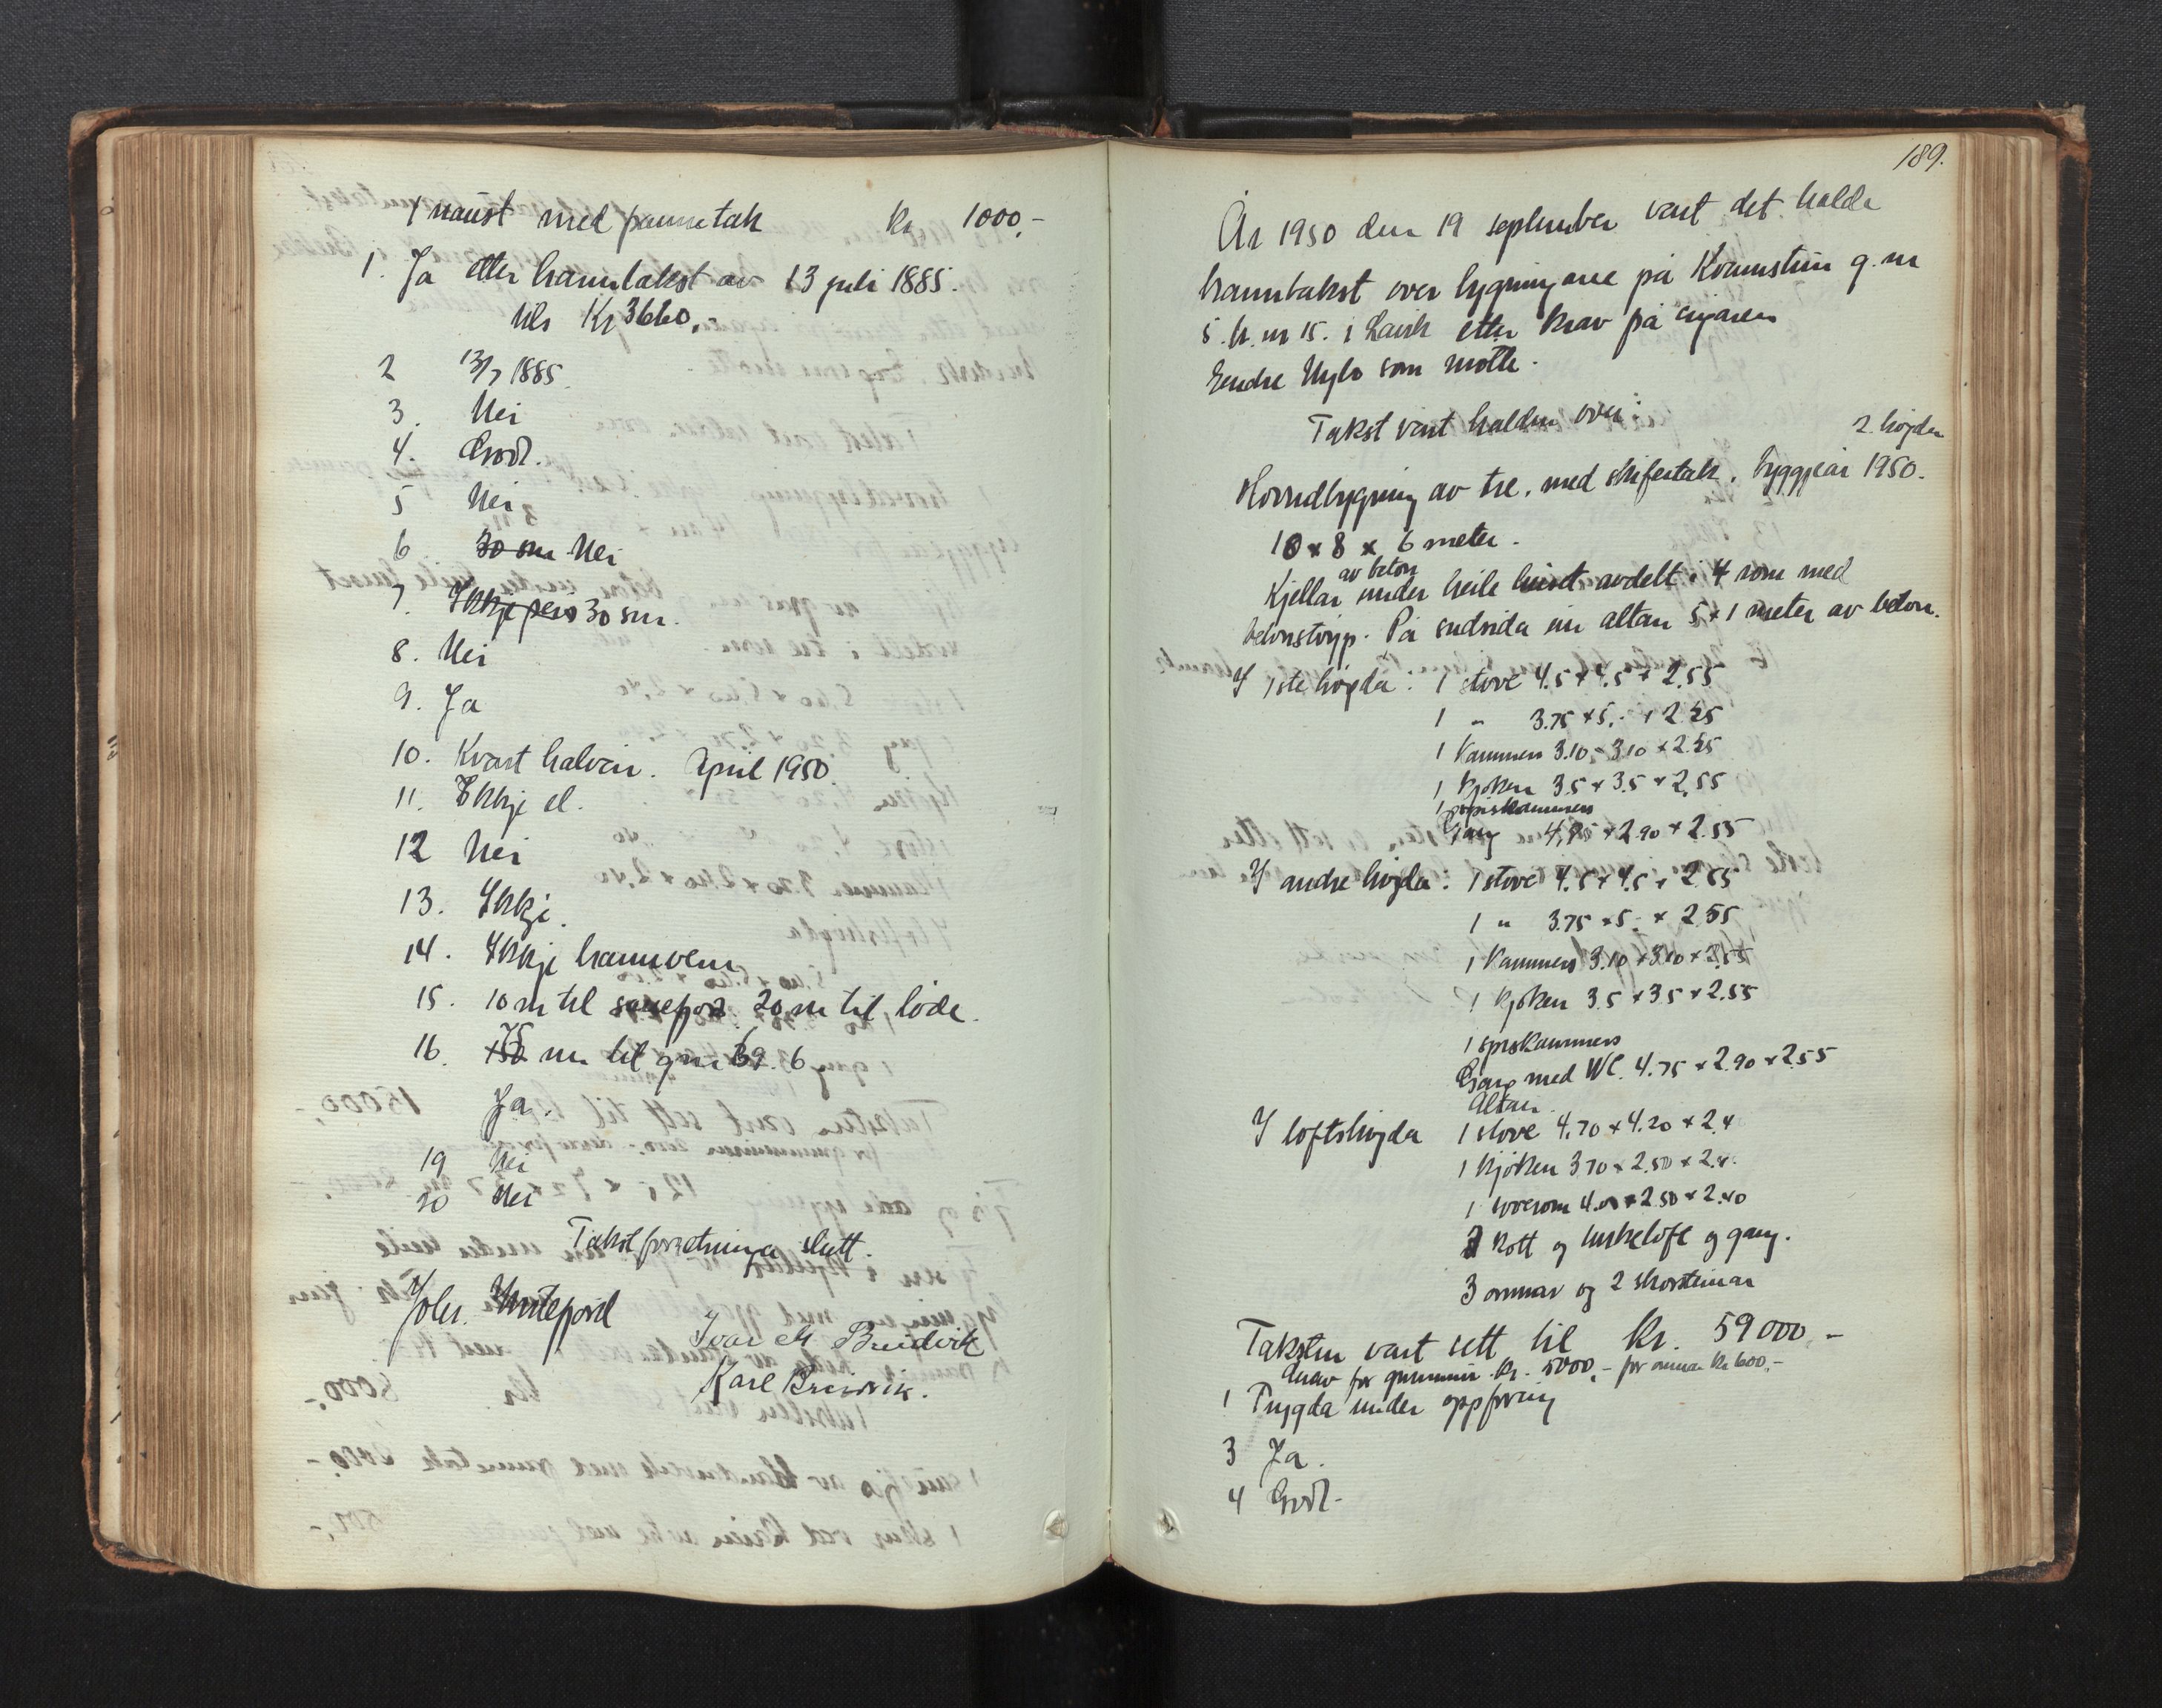 1 naust med pannetak kr 1000,-
1. Ja etter branntakst av 13 juli 1885.
kr 3660,-
2 13/7 1885.
3. Nei
4. God.
5 Nei
6 30 sm Nei
7. Ikkje peis 30 sm.
8. Nei
9. Ja
10. Kvart halvår. April 1950.
11. Ikkje el.
12 Nei
13. Ikkje.
14. Ikkje brannvern
15. 10 m til sauefjos 20 m til löde.
16. 150 75 m til gnr 69. 6
Ja.
19 Nei
20 Nei
Takstforretninga slutt.
Johs.
Ivar M Breidvik
Karl Breidvik.
189.
År 1950 den 19 september vart det halde
branntakst over bygningane på Kvernstein g. nr
5. b. nr 15. i Larvik etter krav på eigaren
Endre som møtte.
Takst vart halden over:
2. högder
Hovudbygning av tre, med skifertak. byggjeår 1950.
10 x 8 x 6 meter.
av beton
Kjellar under heile huset avdelt i 4 rom med
betonstöyp. På sudsida ein altan 5 x 1 meter av beton.
I 1ste högda: 1 stove 4.5 x 4.5 x 2.55
1 " 3.75 x 5.- x 2.55
1 Kammers 3.10 x 3.10 x 2.55
1 Kjöken 3.5 x 3.5 x 2.55
1 spiskammers
Gang 4.75 x 2.90 x 2.55
I andre högda: 1 stove 4.5 x 4.5 x 2.55
1 " 3.75 x 5.- x 2.55
1 Kammers 3.10 x 3.10 x 2.55
1 Kjöken 3.5 x 3.5 x 2.55
1 spiskammers
Gang med WC. 4.75 x 2.90 x 2.55
Altan.
I loftshögda 1 stove 4.70 x 4.20 x 2.4
1 Kjöken 3.70 x 2.50 x 2.4.
1 soverom 4.00 x 2.50 x 2.40
2 Kott og turkeloft og gang.
3 omnar og 2 skorsteinar
Taksten vart sett til kr. 59000,-
derav for grunnmur kr. 5000,- for omnar kr 600,-
1 Trygda under oppföring
3 Ja.
4 God.-